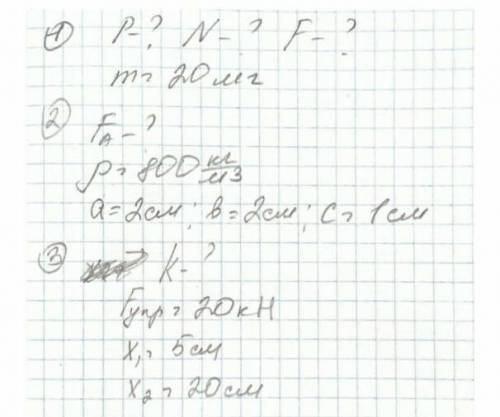 1 P-? N-? F-?
m = 20 мг
2 F_A-?
ρ = 800 кг/м3
a = 2 см; в = 2 см; с = 1 см
3 K-?
Fупр = 20 кН
x₁ = 5 см
x₂ = 20 см